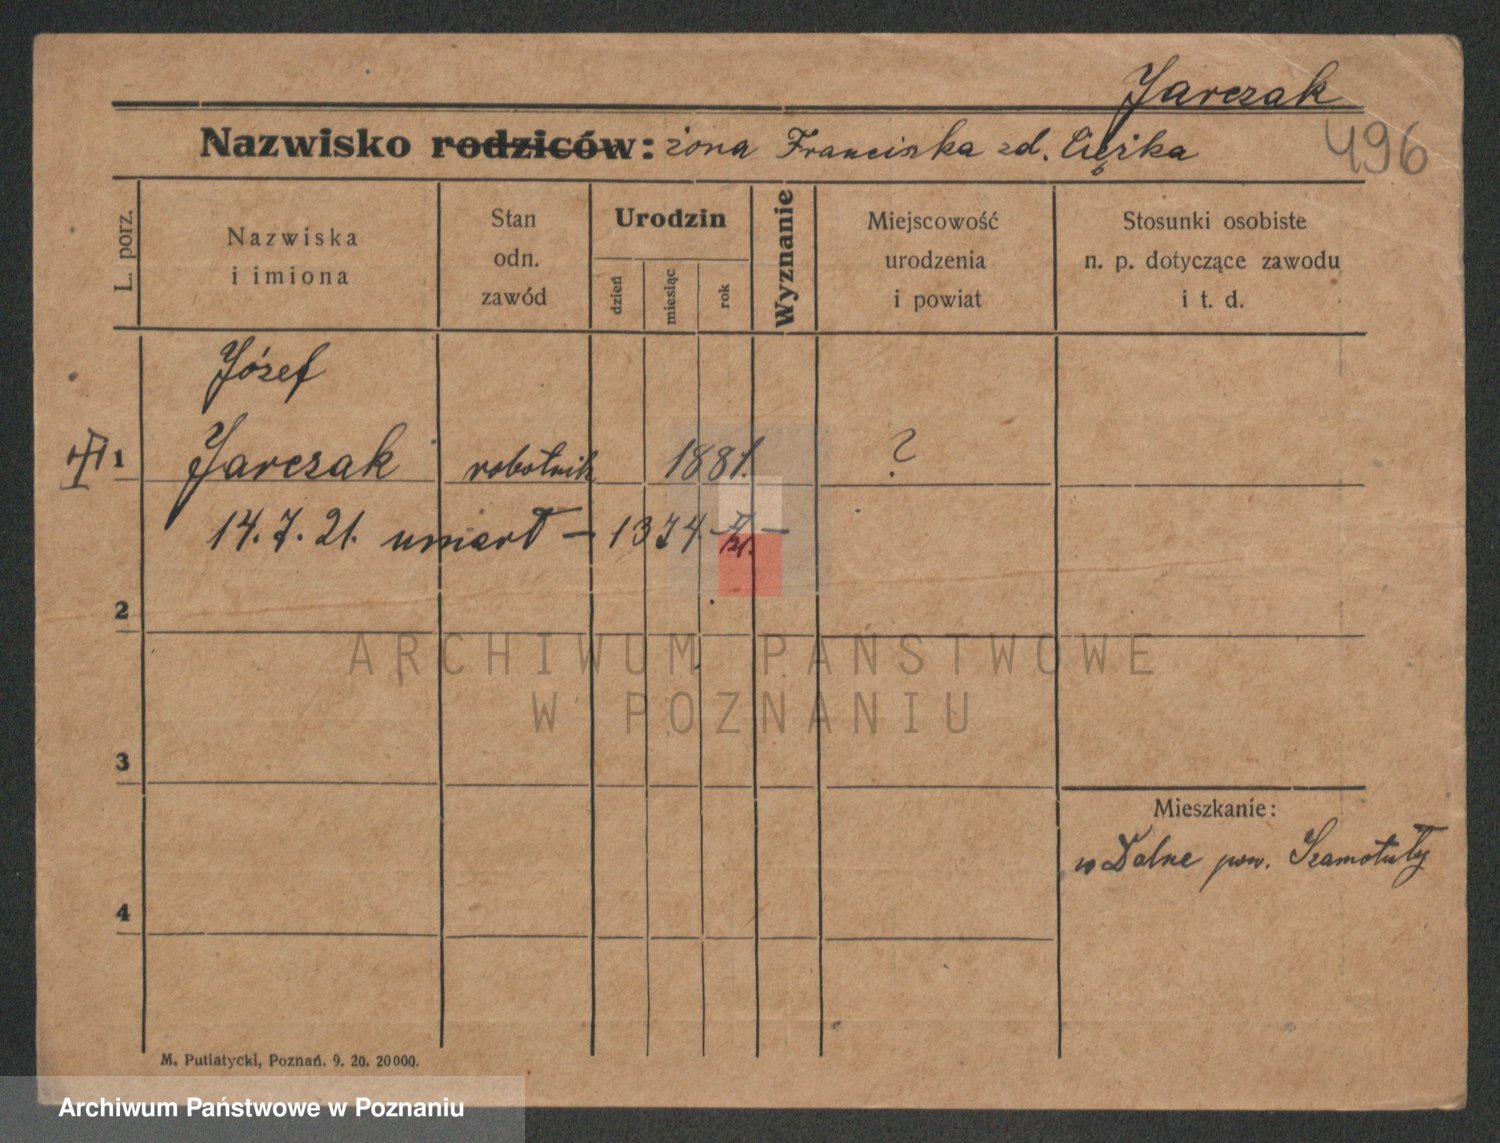 Jarczak
Nazwisko rodziców: żona Franciszka zd. Ciężka
496
L. porz.
Nazwiska
i imiona
Stan
odn.
zawód
Urodzin
dzień
miesiąc
rok
Wyznanie
Miejscowość
urodzenia
i powiat
Stosunki osobiste
n. p. dotyczące zawodu
i t. d.
Józef
1 Jarczak robotnik 1881. ?
14. 7. 21. umarł – 1374
2
ARCHIWUM PAŃSTWOWE
W POZNANIU
3
Mieszkanie:
w Dalne pow. Szamotuły
4
M. Putiatycki, Poznań. 9. 20. 20000.
Archiwum Państwowe w Poznaniu